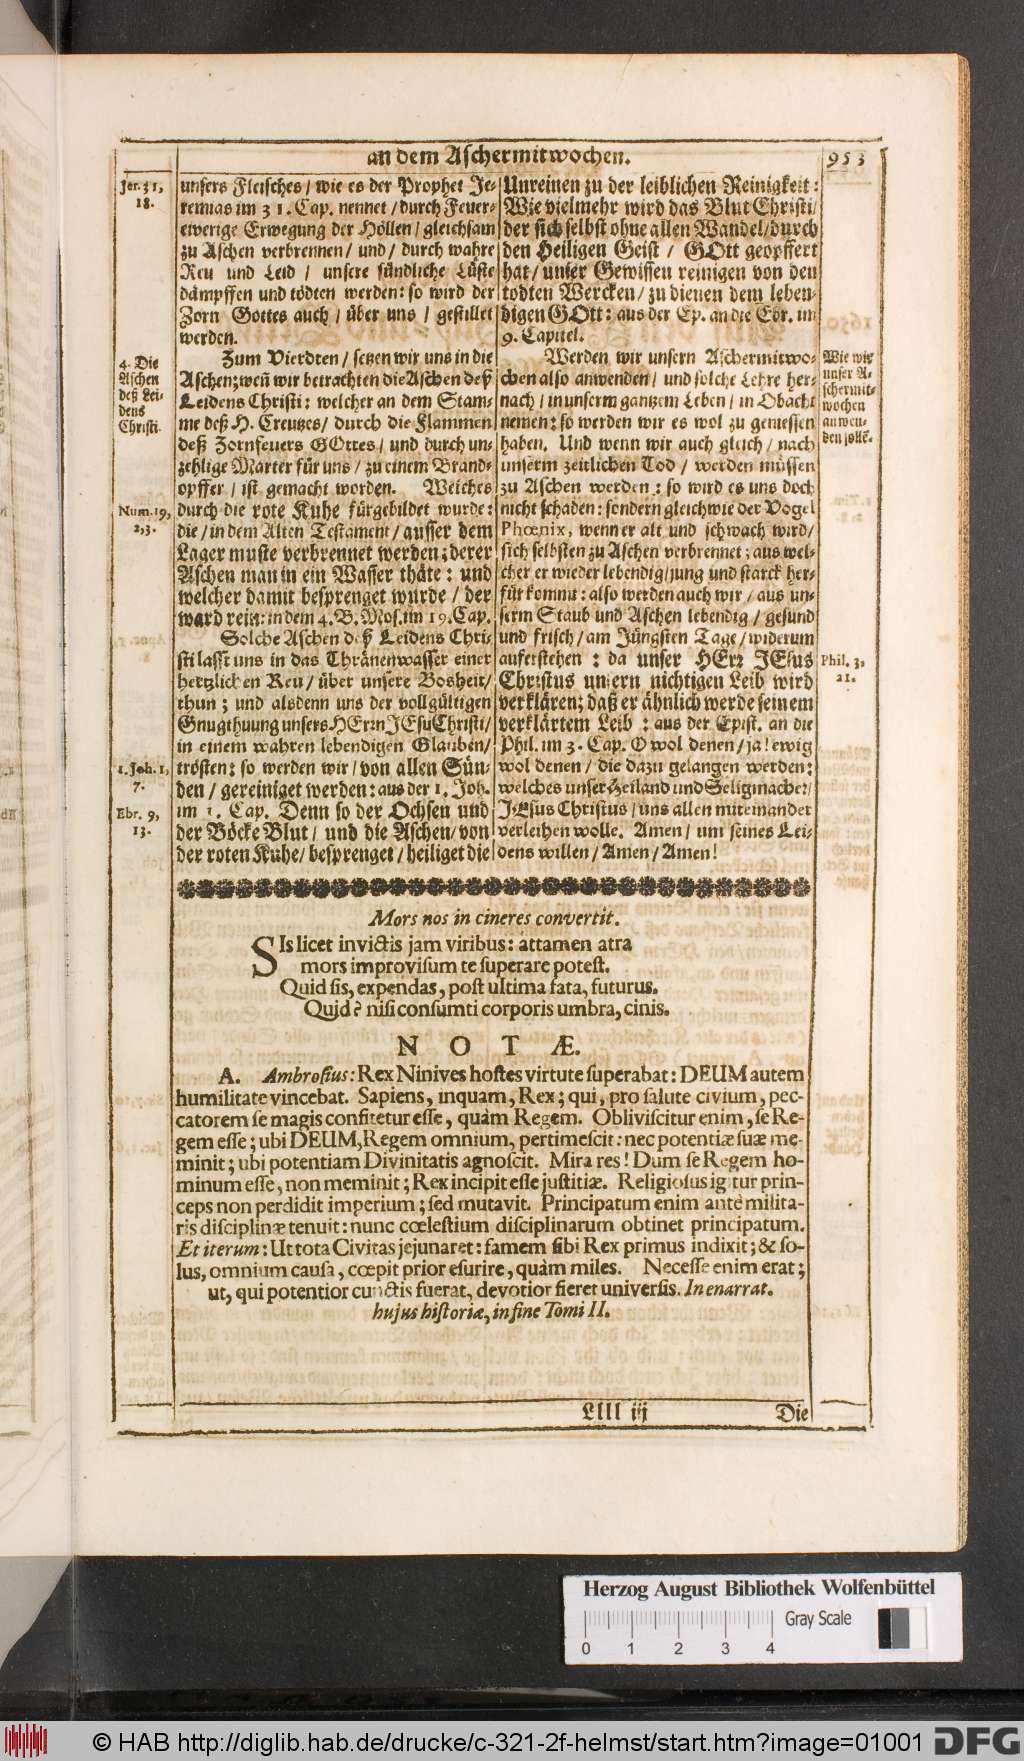 an dem Aschermitwochen.
953
Jer. 31,
18.
unsers Fleisches / wie es der Prophet Je-
remias im 31. Cap. nennet / durch Feuer-
eiverige Erwegung der Höllen / gleichsam
zu Aschen verbrennen / und / durch wahre
Reu und Leid / unsere sündliche Lüste
dämpffen und tödten werden: so wird der
Zorn Gottes auch / über uns / gestillet
werden.
4. Die
Aschen
deß Lei-
dens
Christi.
Zum Vierdten / setzen wir uns in die
Aschen; weñ wir betrachten die Aschen deß
Leidens Christi: welcher an dem Stam-
me deß H. Creutzes / durch die Flammen
deß Zornfeuers GOttes / und durch un-
zehlige Marter für uns / zu einem Brand-
opffer / ist gemacht worden. Welches
Num. 19,
2, 3.
durch die rote Kuhe fürgebildet wurde:
die / in dem Alten Testament / ausser dem
Lager muste verbrennet werden; derer
Aschen man in ein Wasser thäte: und
welcher damit besprenget wurde / der
ward rein: in dem 4. B. Mos. im 19. Cap.
Solche Aschen deß Leidens Chri-
sti lasst uns in das Thränenwasser einer
hertzlichen Reu / über unsere Bosheit /
thun; und alsdenn uns der vollgültigen
Gnugthuung unsers HErrn JEsu Christi /
in einem wahren lebendigen Glauben /
1. Joh. 1,
7.
trösten: so werden wir / von allen Sün-
den / gereiniget werden: aus der 1. Joh.
Ebr. 9,
13.
im 1. Cap. Denn so der Ochsen und
der Böcke Blut / und die Aschen / von
der roten Kuhe / besprenget / heiliget die
Unreinen zu der leiblichen Reinigkeit:
Wie vielmehr wird das Blut Christi /
der sich selbst ohne allen Wandel / durch
den Heiligen Geist / GOtt geopffert
hat / unser Gewissen reinigen von den
todten Wercken / zu dienen dem leben-
digen GOtt: aus der Ep. an die Ebr. im
9. Capitel.
Wie wir
unser A-
schermit-
wochen
anwen-
den sollẽ.
Werden wir unsern Aschermitwo-
chen also anwenden / und solche Lehre her-
nach / in unserm gantzem Leben / in Obacht
nemen: so werden wir es wol zu geniessen
haben. Und wenn wir auch gleich / nach
unserm zeitlichen Tod / werden müssen
zu Aschen werden: so wird es uns doch
nicht schaden: sondern gleichwie der Vogel
Phœnix, wenn er alt und schwach wird /
sich selbsten zu Aschen verbrennet; aus wel-
cher er wieder lebendig / jung und starck her-
für kommt: also werden auch wir / aus un-
serm Staub und Aschen lebendig / gesund
und frisch / am Jüngsten Tage / widerum
Phil. 3,
21.
auferstehen: da unser HErr JEsus
Christus unsern nichtigen Leib wird
verklären; daß er ähnlich werde seinem
verklärtem Leib: aus der Epist. an die
Phil. im 3. Cap. O wol denen / ja! ewig
wol denen / die dazu gelangen werden:
welches unser Heiland und Seligmacher /
JEsus Christus / uns allen miteinander
verleihen wolle. Amen / um seines Lei-
dens willen / Amen / Amen!
Mors nos in cineres convertit.
SIs licet invictis jam viribus: attamen atra
mors improvisum te superare potest.
Quid sis, expendas, post ultima fata, futurus.
Quid? nisi consumti corporis umbra, cinis.
NOTÆ.
A. Ambrosius: Rex Ninives hostes virtute superabat: DEUM autem
humilitate vincebat. Sapiens, inquam, Rex; qui, pro salute civium, pec-
catorem se magis confitetur esse, quàm Regem. Obliviscitur enim, se Re-
gem esse; ubi DEUM, Regem omnium, pertimescit: nec potentiæ suæ me-
minit; ubi potentiam Divinitatis agnoscit. Mira res! Dum se Regem ho-
minum esse, non meminit; Rex incipit esse justitiæ. Religiosus igitur prin-
ceps non perdidit imperium; sed mutavit. Principatum enim antè milita-
ris disciplinæ tenuit: nunc cœlestium disciplinarum obtinet principatum.
Et iterum: Ut tota Civitas jejunaret: famem sibi Rex primus indixit; & so-
lus, omnium causa, cœpit prior esurire, quàm miles. Necesse enim erat;
ut, qui potentior cunctis fuerat, devotior fieret universis. In enarrat.
hujus historiæ, in fine Tomi II.
Llll iij
Die
Herzog August Bibliothek Wolfenbüttel
Gray Scale
0 1 2 3 4
© HAB http://diglib.hab.de/drucke/c-321-2f-helmst/start.htm?image=01001
DFG